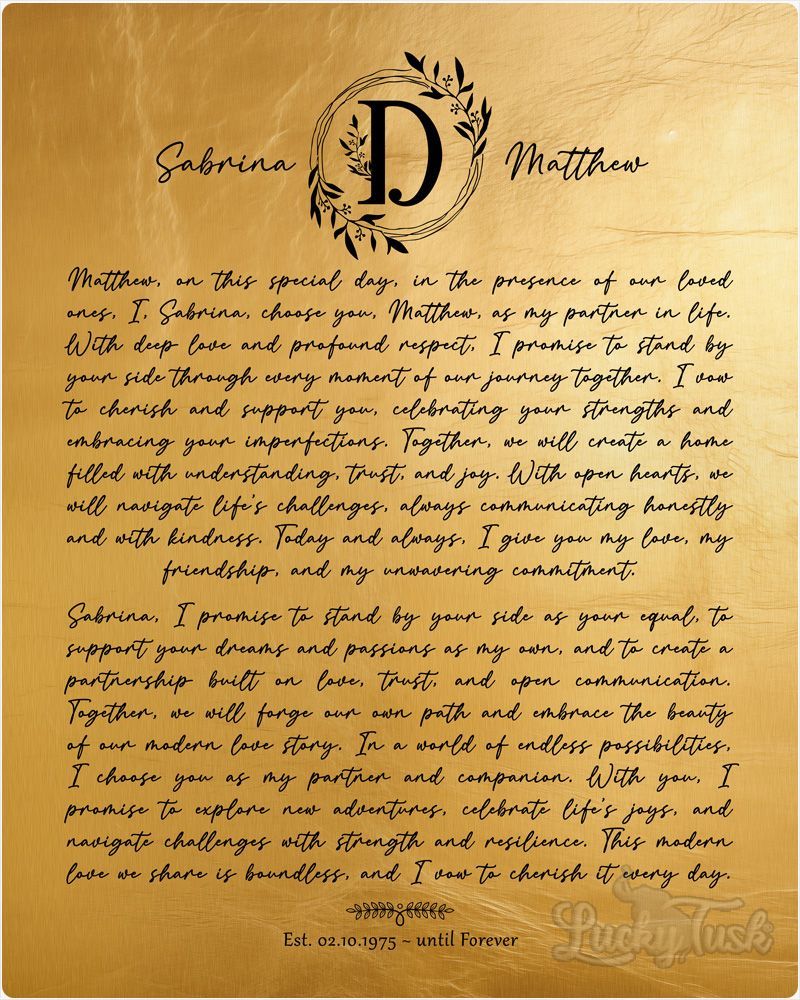 Sabrina D Matthew
Matthew, on this special day, in the presence of our loved
ones, I, Sabrina, choose you, Matthew, as my partner in life.
With deep love and profound respect, I promise to stand by
your side through every moment of our journey together. I vow
to cherish and support you, celebrating your strengths and
embracing your imperfections. Together, we will create a home
filled with understanding, trust, and joy. With open hearts, we
will navigate life's challenges, always communicating honestly
and with kindness. Today and always, I give you my love, my
friendship, and my unwavering commitment.
Sabrina, I promise to stand by your side as your equal, to
support your dreams and passions as my own, and to create a
partnership built on love, trust, and open communication.
Together, we will forge our own path and embrace the beauty
of our modern love story. In a world of endless possibilities,
I choose you as my partner and companion. With you, I
promise to explore new adventures, celebrate life's joys, and
navigate challenges with strength and resilience. This modern
love we share is boundless, and I vow to cherish it every day.
Est. 02.10.1975 ~ until Forever
LuckyTusk